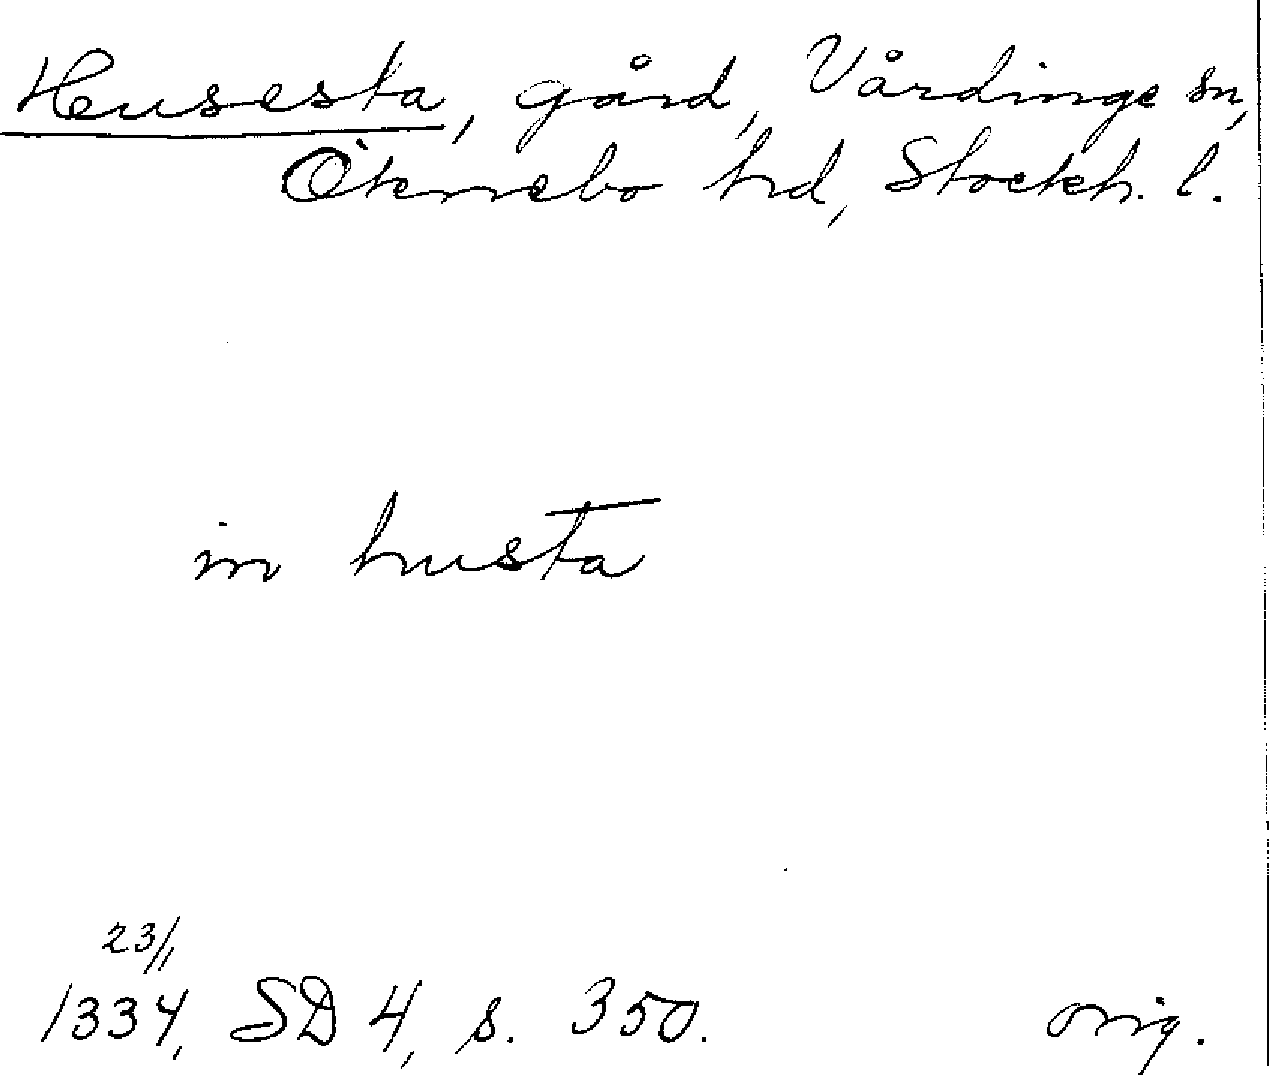 Husesta, gård, Vårdinge sn,
Öknebo hd, Stockh. l.
in husta
23/1
1334, SD 4, s. 350. orig.